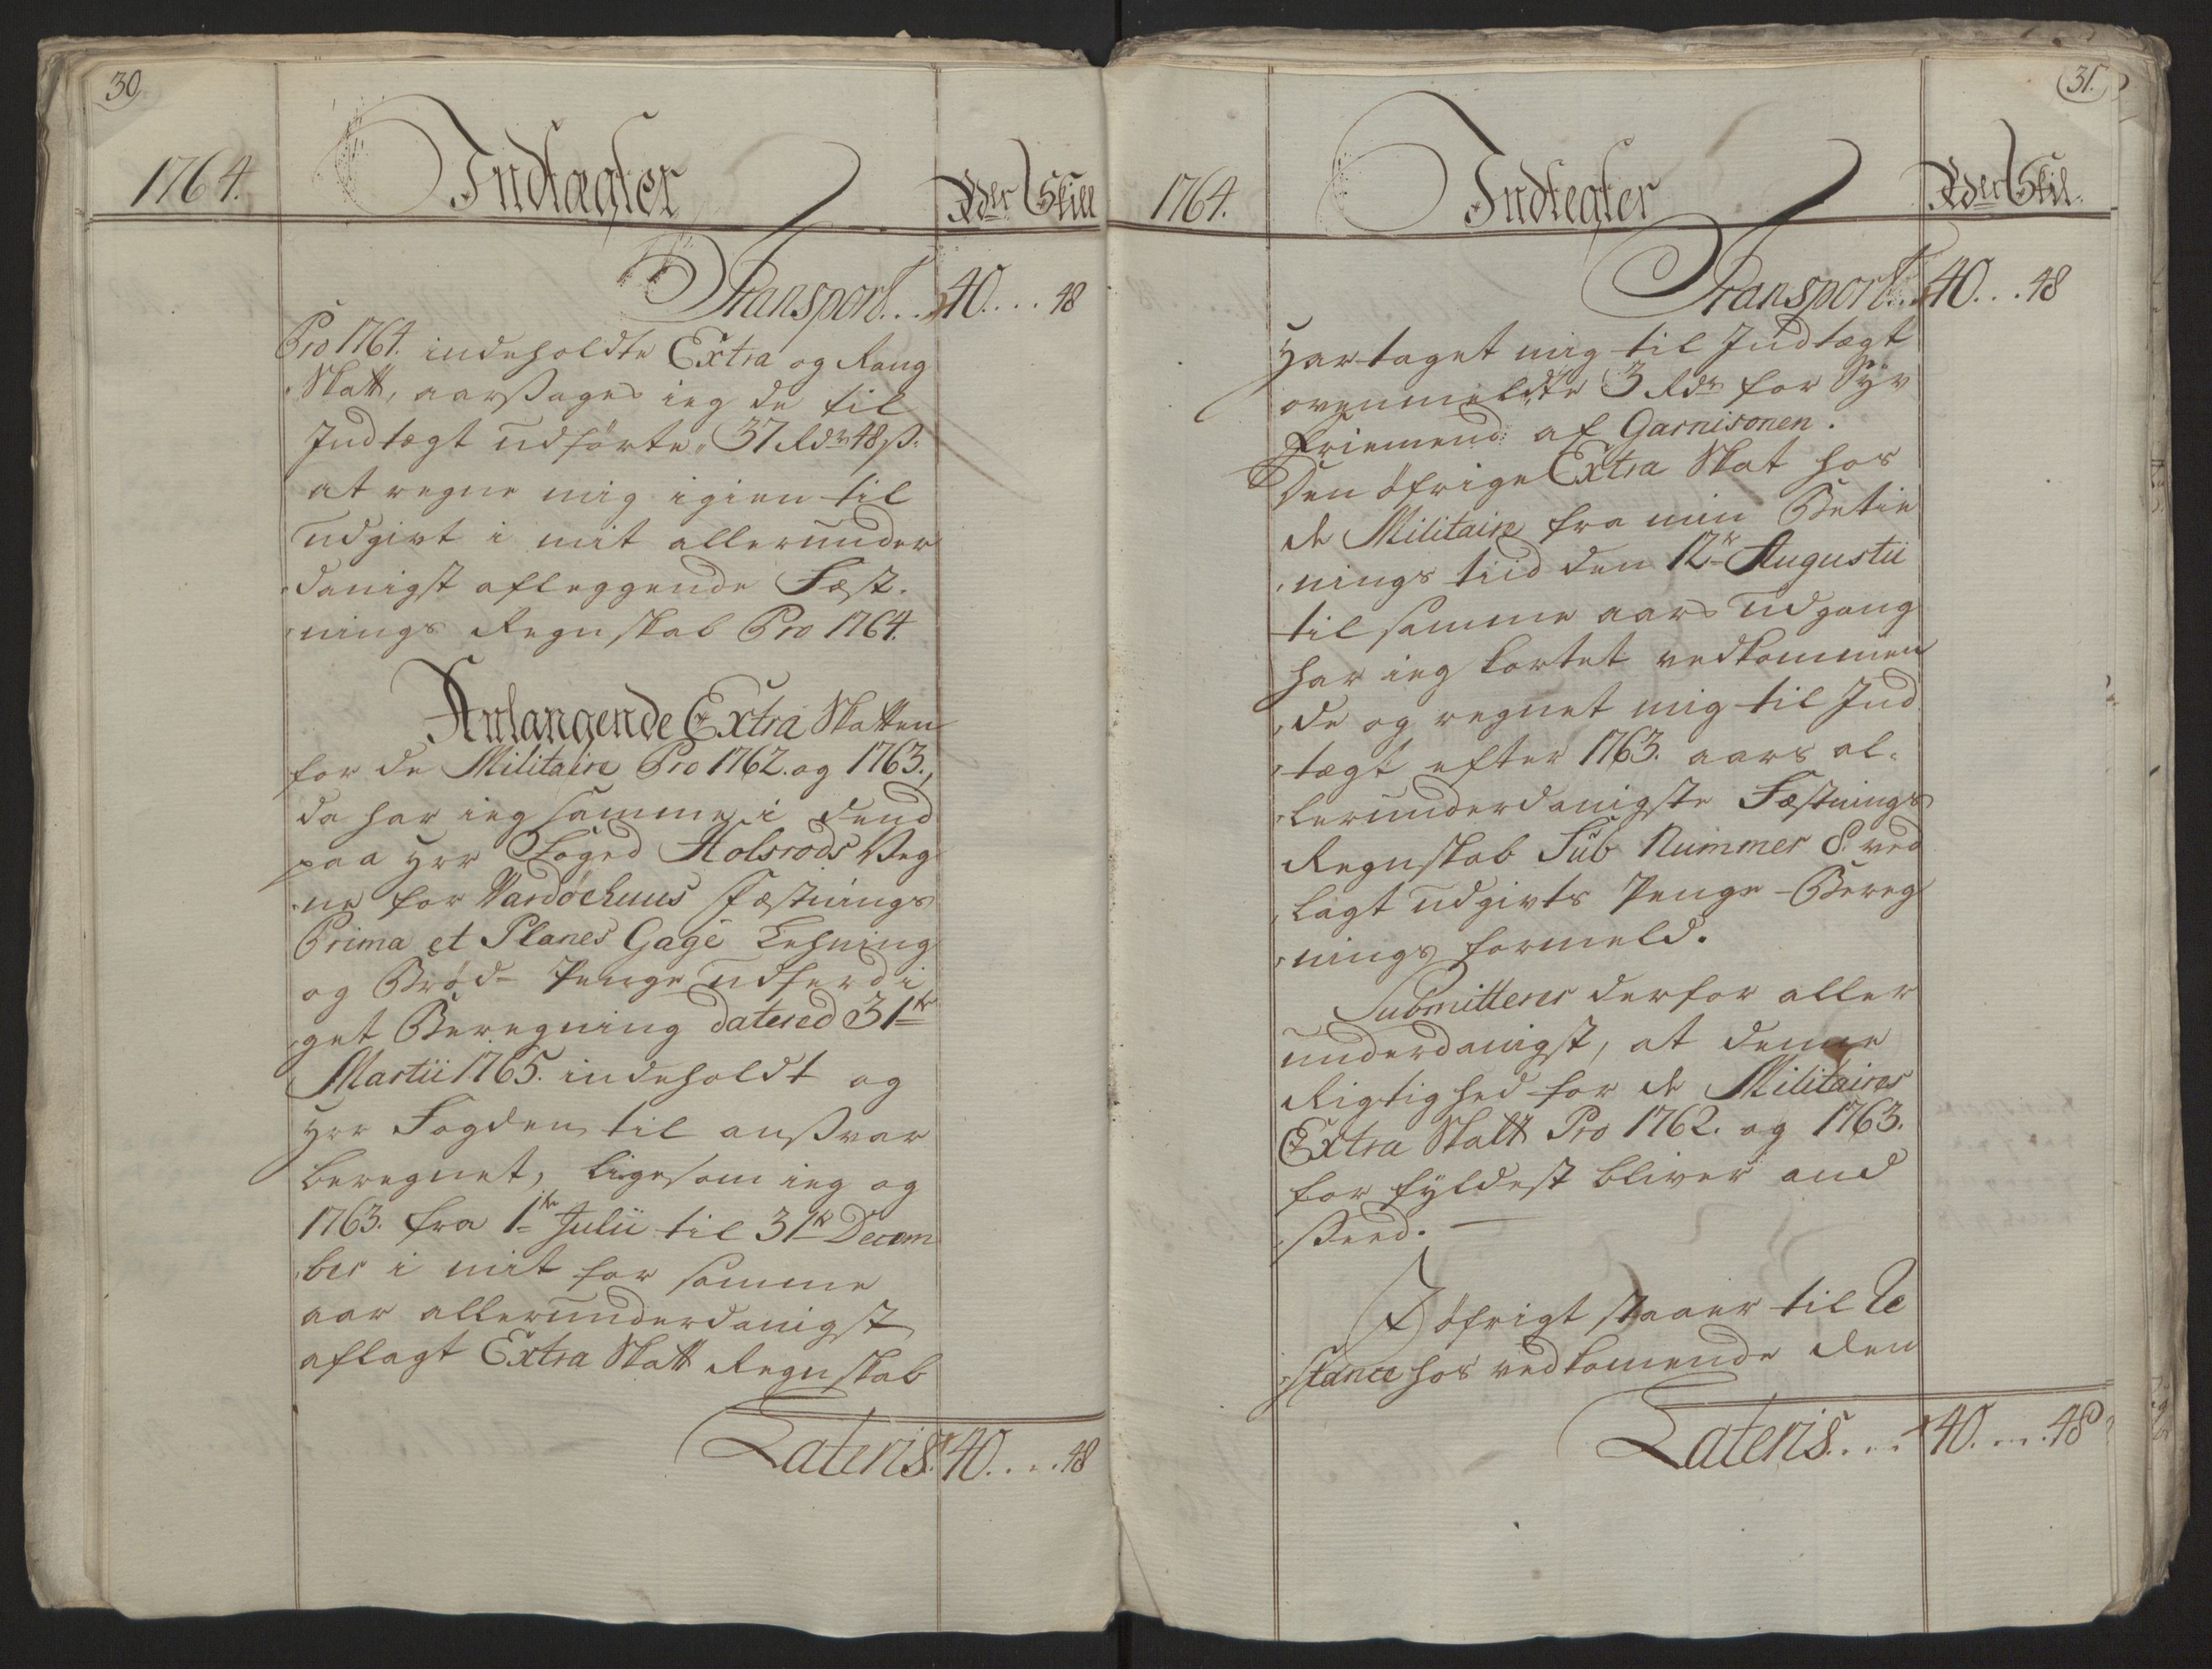 30
1764.
Indtægter
Rdlr Skill
Transport... 40.... 48
Pro 1764. indeholdte Extra og Rang
Skatt, aarsages ieg de til
Indtægt udførte 37 Rdr 48 s.
at regne mig igien til
udgivt i mit allerunder
danigst aflæggende Fæst-
nings Regnskab Pro 1764.
Anlangende Extra Skatten
for de Militaire Pro 1762. og 1763.,
da har ieg samme i dend
paa Hrr Foged Holsrods Veg
ne for Vardøehuus Fæstnings
Prima et Planes Gage Lehning
og Brød-Penge udferdi
get Beregning datered 31te
Martii 1765. indeholdt og
Hrr Fogden til ansvar
beregnet, ligesom ieg og
1763. fra 1te Julii til 31te Decem
ber i mit for samme
aar allerunderdanigst
aflagt Extra Skatt Regnskab
Lateris 40.... 48
31.
1764.
Indtegter
Rdlr Skil.
Transport... 40... 48
Har taget mig til Indtægt
ovenmeldte 3 Rdr for Syv
Friemend af Garnisonen.
Den øfrige Extra Skat hos
de Militaire fra min Betie
nings tiid den 12te Augustii
til samme aars udgang
har ieg kortet vedkommen
de og regnet mig til Ind
tægt efter 1763. aars al-
lerunderdanigste Fæstnings
Regnskab Sub Nummer 8. ved
lagt udgivts Penge-Bereg
nings formeld.
Submitterer derfor aller
underdanigst, at denne
Rigtighed for de Militaires
Extra Skatt Pro 1762. og 1763.
for fyldest bliver and
seed.
I øfrigt staaer til Re
stance hos vedkomende den
Lateris.... 40..... 48